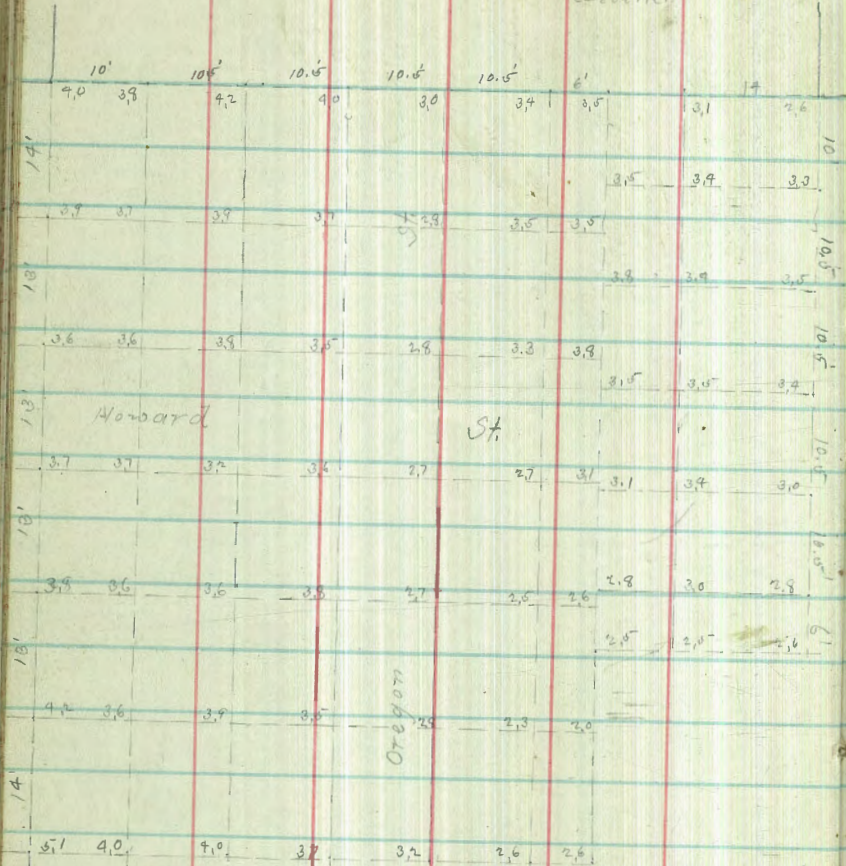 10' 10.5' 10.5' 10.5' 10.5' 6' 14
4,0 3,8 4,2 4,0 3,0 3,4 3,5 3,1 2,6
14' 10'
3,5 3,4 3,3
3,9 3,7 3,9 3,7 St 2,8 3,5 3,5
10.5'
13' 3,8 3,4 3,5
3,6 3,6 3,8 3,5 2,8 3.3 3,8 10.5'
3,5 3,5 3,4
13' Howard St.
3.7 3,7 3,2 3,6 2,7 2,7 3,1 10.5'
3.1 3,4 3,0
13' 10.5'
3,8 3,6 3,6 3,8 2,7 2,5 2,6 2.8 3,0 2.8
2,5 2,5 2,6 6'
13'
4,2 3,6 3,9 3,5 Oregon 2,8 2,3 2,0
14'
5,1 4,0 4,0 3,2 3,2 2,6 2,6